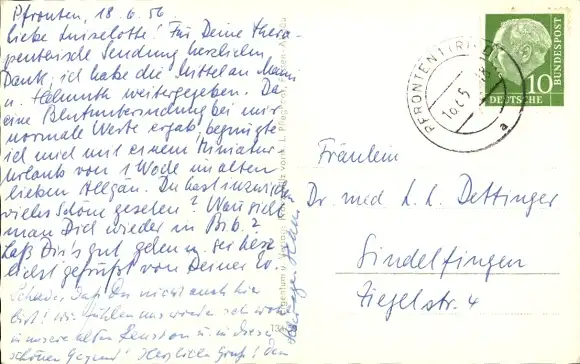 Pfronten, 18.6.56
liebe Luiselotte! Für Deine thera-
peutische Sendung herzlichen
Dank, ich habe die Mittel an Mami
u. Helmuth weitergegeben. Da
eine Blutuntersuchung bei mir
normale Werte ergab, begnügte
ich mich mit einem Miniatur-
urlaub von 1 Woche im alten
lieben Allgäu. Du hast inzwischen
vieles Schöne gesehen? Wann sieht
man Dich wieder in Bib.?
Laß Dir's gut gehen u. sei herz-
lichst gegrüßt von Deiner
Schade, daß Du nicht auch hier
bist! Wir fühlen uns wieder sehr wohl
in unserer alten Pension u. in dieser
schönen Gegend! Herzlichen Gruß!
PFRONTEN 1
a
10
DEUTSCHE
BUNDESPOST
Fräulein
Dr. med. L. L. Dettinger
Sindelfingen
Ziegelstr. 4